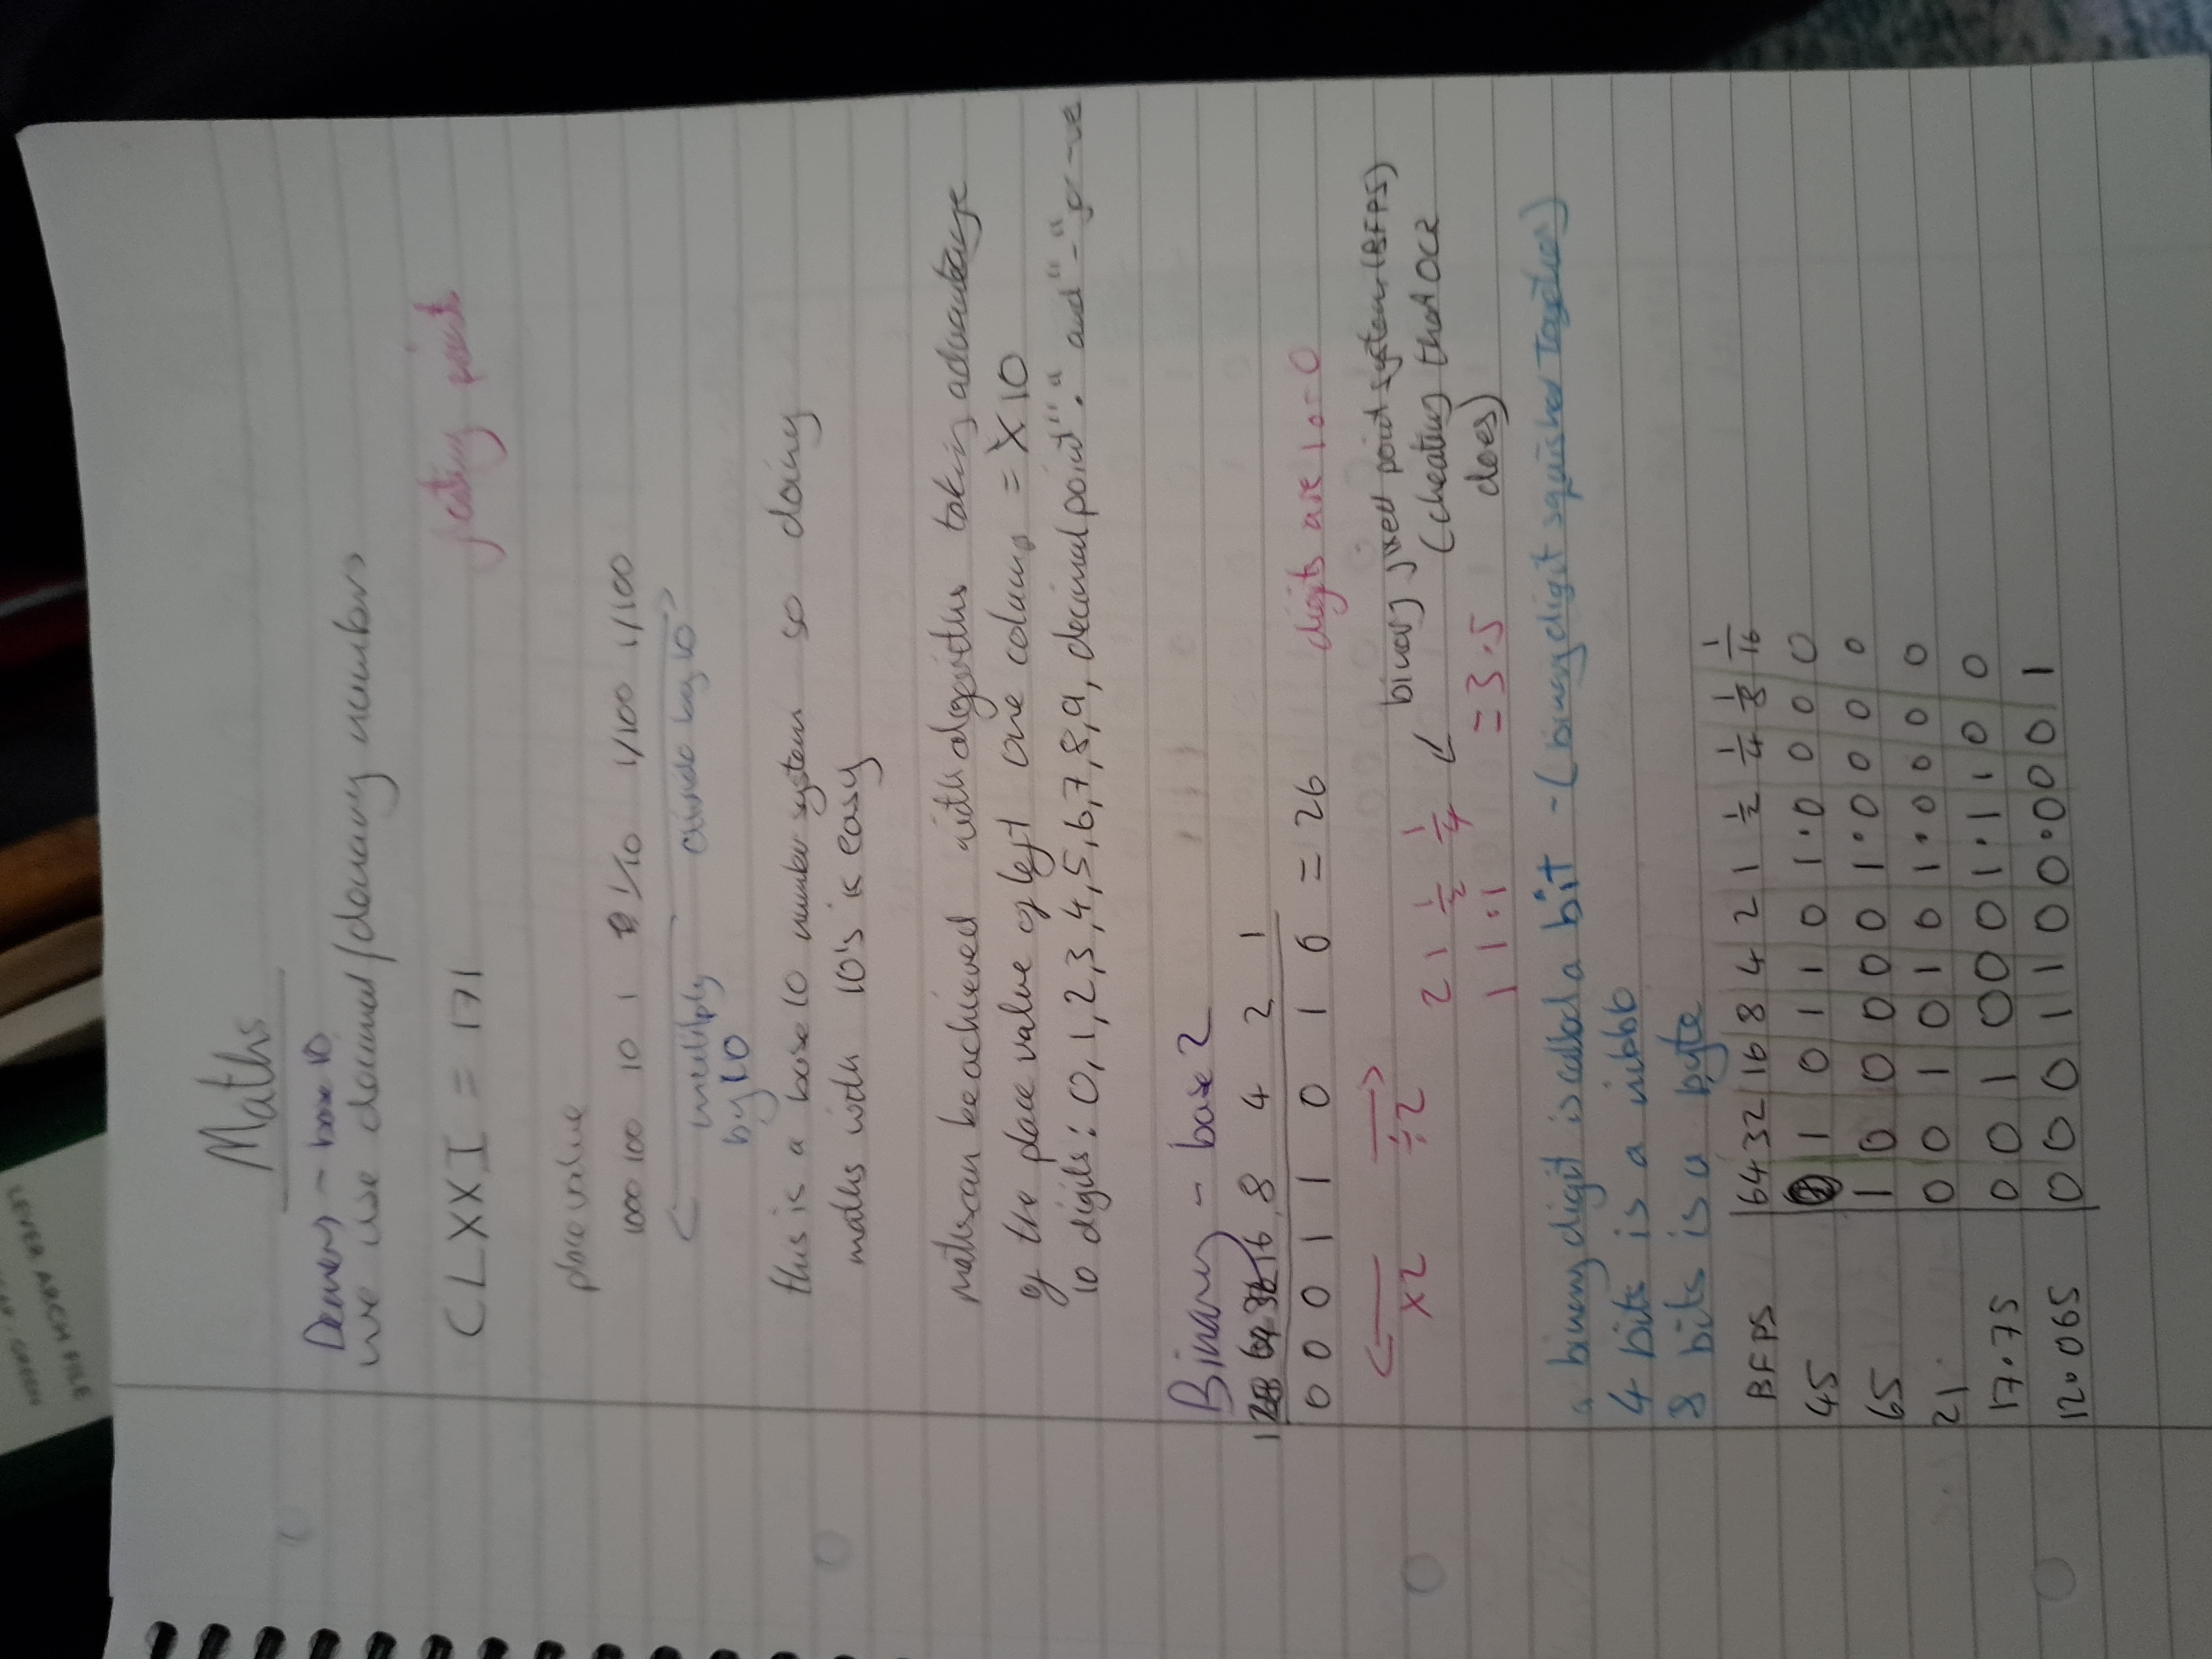 LEVER ARCH FILE
GREEN
Maths
Denary - base 10
we use decimal/denary numbers
CLXXI = 171
floating point
place value
1000 100 10 1 1/10 1/100 1/100
multiply divide by 10
by 10
this is a base 10 number system so doing
maths with 10's is easy
maths can be achieved with algorithms taking advantage
of the place value of left one column = X10
10 digits: 0, 1, 2, 3, 4, 5, 6, 7, 8, 9, decimal point "." and "-" for -ve
Binary - base 2
128 64 32 16 8 4 2 1
0 0 0 1 1 0 1 0 = 26
digits are 1 or 0
x2 ÷2
binary fixed point system (BFPS)
2 1 1/2 1/4
(cheating that OCR
1 1.1 = 3.5
does)
a binary digit is called a bit - (binary digit squished together)
4 bits is a nibble
8 bits is a byte
BFPS 64 32 16 8 4 2 1 1/2 1/4 1/8 1/16
45 0 1 0 1 1 0 1.0 0 0 0
65 1 0 0 0 0 0 1.0 0 0 0
21 0 0 1 0 1 0 1.0 0 0 0
17.75 0 0 1 0 0 0 1.1 1 0 0
12.065 0 0 0 1 1 0 0.0 0 0 1